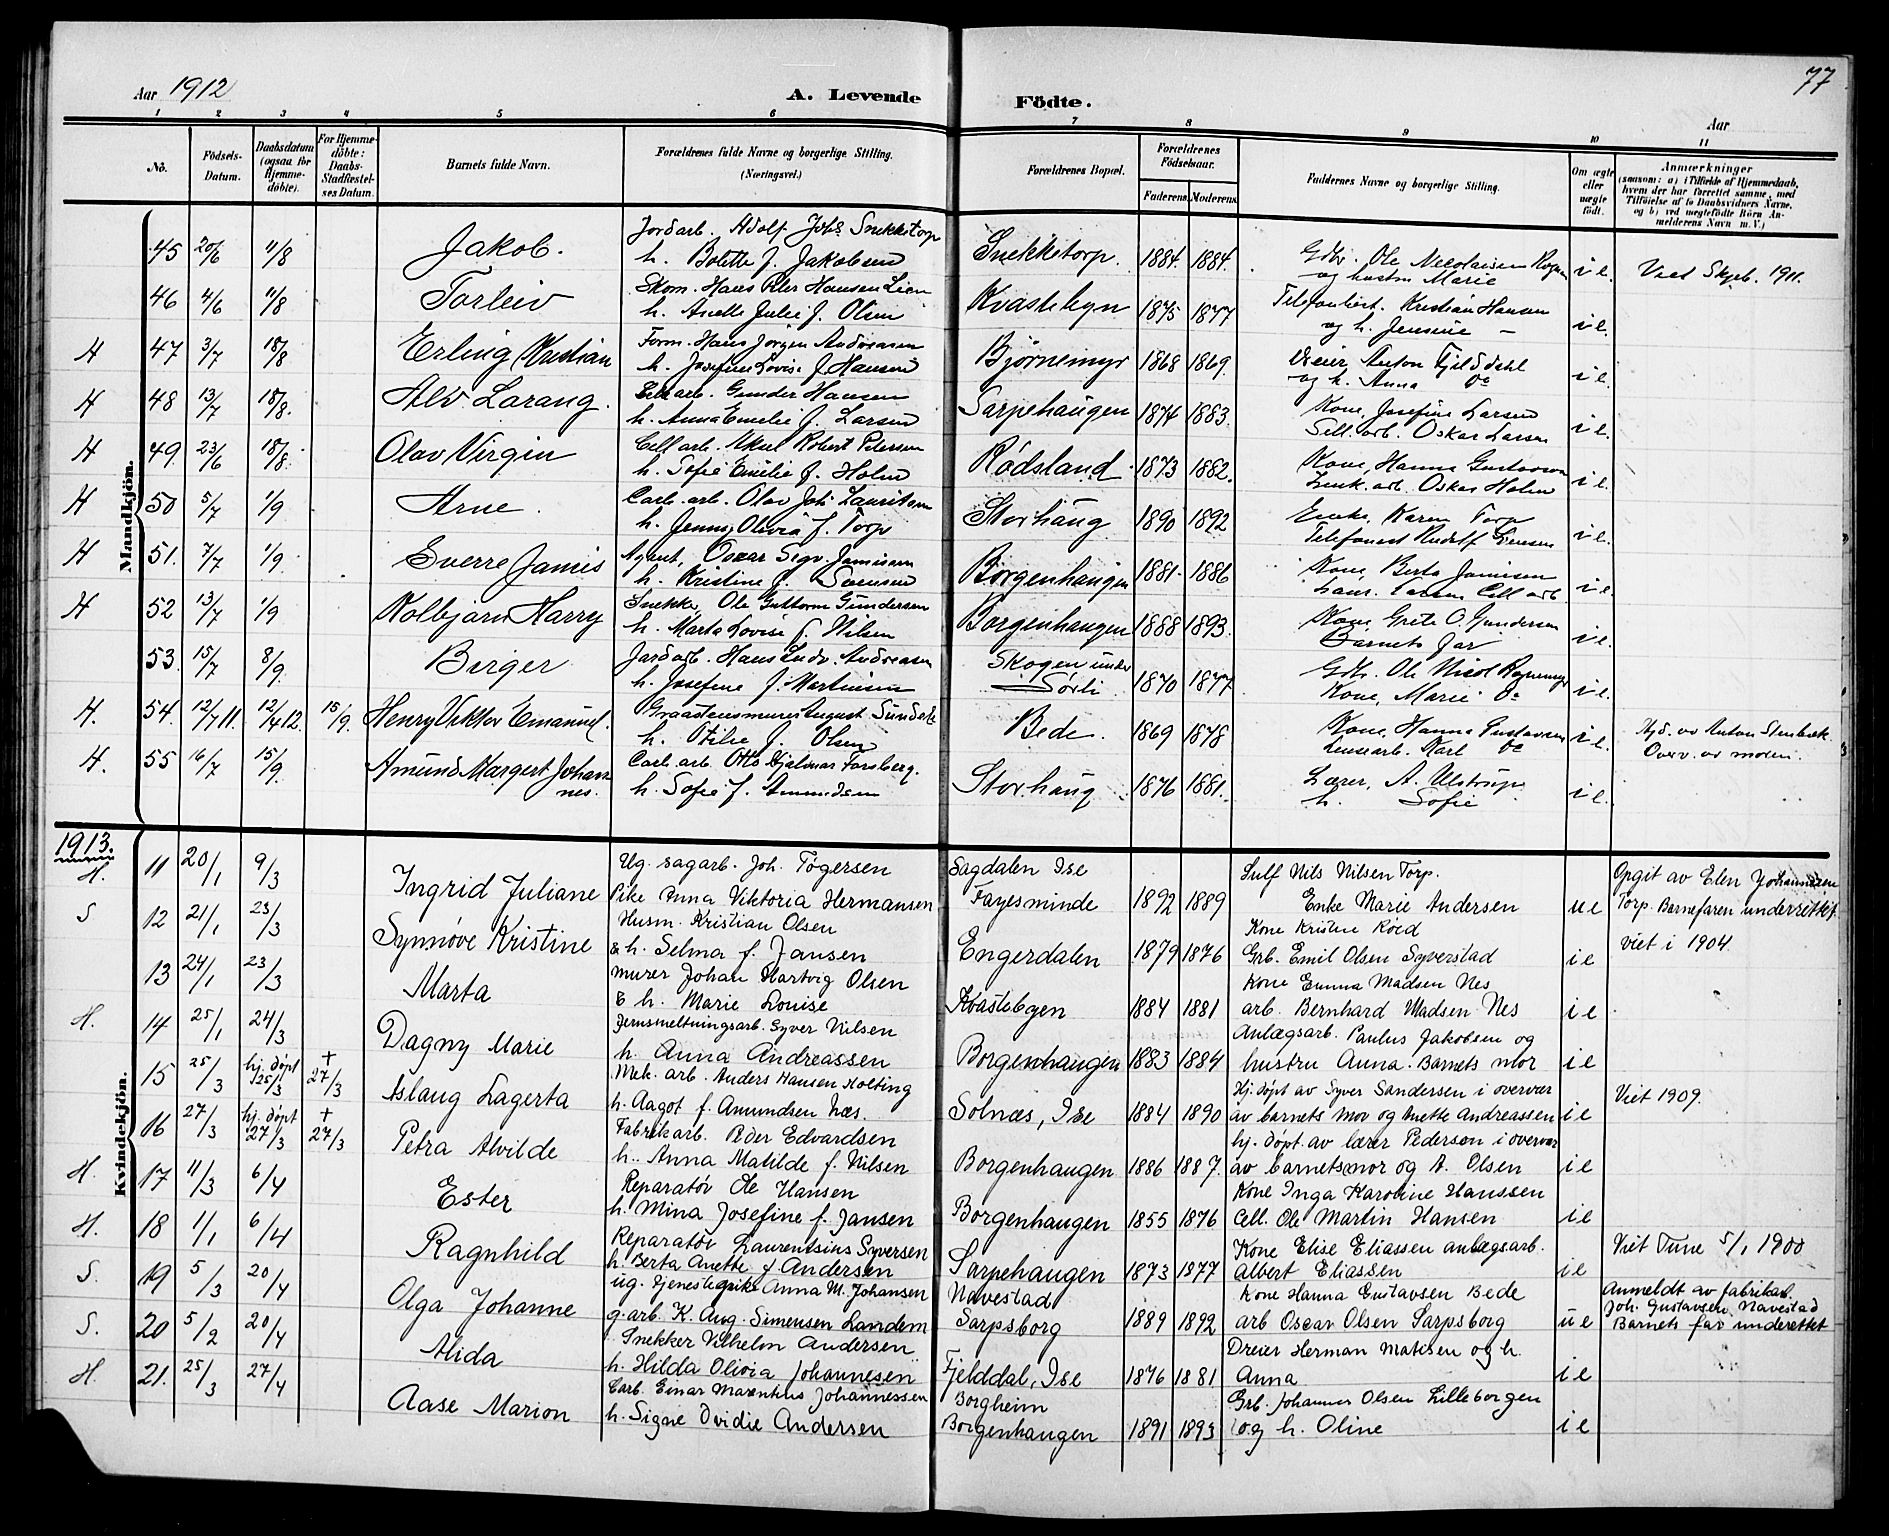 77
Aar 1912
A. Levende Födte.
Aar
1 2 3 4 5 6 7 8 9 10 11
No.
Födsels-Datum.
Daabsdatum (ogsaa for Hjemme-döbte).
For Hjemme-döbte: Daabs-Stadfæstel-ses Datum.
Barnets fulde Navn.
Forældrenes fulde Navne og borgerlige Stilling. (Næringsvei.)
Forældrenes Bopæl.
Forældrenes Födselsaar.
Faderens. Moderens.
Faddernes Navne og borgerlige Stilling.
Om ægte eller uægte födt.
Anmærkninger (saasom: a) i Tilfælde af Hjemmedaab, hvem der har forrettet samme, med Tilföielse af to Daabsvidners Navne, og b) ved uægtefödte Börn An-melderens Navn m. V.)
Mandkjön.
45 20/6 11/8 Jakob. Jordarb. Adolf Johs Snekkitorp
h. Bolette f. Jakobsen Snekkitorp. 1884. 1884. Gdbr. Ole Nicolaisen
og hustru Marie i e. Viet Skjeb. 1911.
46 4/6 11/8 Torleiv Skom. Hans Peter Hansen Lien
h. Anette Julie f. Olsen Kvastebyn 1875 1877 Kristian Hansen
og h. Jensine — i e.
H 47 3/7 18/8 Erling Kristian Form. Hans Jörgen Andreasen
h. Josefine Lovise f. Hansen Björnemyr 1868 1869. Dreier Anton Fjelddahl
og h. Anna Do i e.
H 48 13/7 18/8. Alv Larang. Gunder Hansen
h. Anna Emelie f. Larsen Sarpehaugen 1874 1883. Kone, Josefine Larsen
Cell. arb. Oskar Larsen i e.
H 49. 23/6 18/8. Olav Virgin Cell arb. Robert Petersen
h. Sofie Emilie f. Holm Rödsland 1873 1882. Kone, Hanna Gustavsen
arb. Oskar Holm i e.
H 50 5/7 1/9 Arne. Carb. arb. Olav Joh. Lauritsen
h. Jenny Olivia f. Torp Storhaug 1890 1892 Enke, Karen Torp
Telefonist Rudolf Jensen i e.
H 51. 7/7 1/9. Sverre Jamis Agent, Oscar Sigv. Jamissen
h. Kristine f. Svensen Borgenhaugen 1881. 1886 Kone Berta Jamisen
Larsen Cell arb. i e.
H 52 13/7 1/9 Kolbjörn Harry Snekker, Ole Guttorm Gundersen
h. Marta Lovise f. Nilsen Borgenhaugen 1888 1893. Kone, Grete O. Gundersen
Barnets far i e.
53. 15/7 8/9. Birger Jordarb. Hans Ludv. Andreasen
h. Josefine f. Martinsen Skogen under
Sörli 1870 1877 Gdbr. Ole Nicol
Kone, Marie Do i e.
H. 54. 12/7 11. 12/4 12. 15/9. Henry Viktor Emanuel. August Sundell
h. Otilie f. Olsen Bede. 1869 1878 Kone, Hanna Gustavsen
Karl Do i e. Hjd. av Anton Stenbæk.
Overv. av moren.
H. 55 16/7 15/9. Amund Margert Johan
nes. Carb. arb. Otto Hjalmar Forsberg.
h. Sofie f. Amundsen Storhaug 1876 1881. Lærer, A. Ulstrup
h. Sofie i e.
1913.
Kvindekjön.
H. 11 20/1 9/3 Ingrid Juliane Ug. sagarb. Joh. Tögersen
Pike Anna Viktoria Hermansen Sagdalen Ise
Fayesminde 1892 1889 Sulf Nils Nilsen Torp.
Enke Marie Andersen u e Opgit av Elen Johannesen
Torp. Barnefaren underrettet.
S 12 21/1 23/3 Synnöve Kristine Husm. Kristian Olsen
& h. Selma f. Jansen Engerdalen 1879 1876 Kone Kristine Röed
Grb. Emil Olsen Syverstad i e viet i 1904.
13 24/1 23/3 Marta murer Johan Hartvig Olsen
& h. Marie Louise Kvastebyen 1884 1881 Kone Emma Madsen Nes
arb. Bernhard Madsen Nes i e
H. 14 25/1 24/3 Dagny Marie Jernsmeltningsarb. Syver Nilsen
h. Anna Andreassen Borgenhaugen 1883 1884 Anlægsarb. Paulus Jakobsen og
hustru Anna. Barnets mor i e
15 25/3 hj. döpt 25/3 + 27/3 Aslaug Lagerta Mek. arb. Anders Hansen Kolting
h. Aagot f. Amundsen Næs. Solnæs, Ise 1884 1890 Hj. döpt av Syver Sandersen i overvær
av barnets mor og Anette Andreassen i e Viet 1909.
16 27/3 hj. döpt 27/3 + 27/3 Petra Alvilde Fabrikarb. Peder Edvardsen
h. Anna Matilde f. Nilsen Borgenhaugen 1886 1887. hj. döpt av lærer Pedersen i overvær
av barnets mor og A. Olsen i e
H. 17 11/3 6/4 Ester Reparatör Ole Hansen
h. Mina Josefine f. Jansen Borgenhaugen 1855 1876 Kone Inga Karoline Hanssen
Cell. Ole Martin Hansen i e
H. 18 1/1 6/4 Ragnhild Reparatör Laurentsius Syversen
h. Berta Anette f Andersen Sarpehaugen 1873 1877 Kone Elise Eliassen anlægsarb.
Albert Eliassen i e Viet Tune 5/1 1900
S. 19 5/3 20/4 Olga Johanne ug. tjenestepike Anna M. Johansen
g. arb. K. Aug. Simensen Landem Navestad
Sarpsborg 1889 1892 Kone Hanna Gustavsen Bede
arb Oscar Olsen Sarpsborg u e Anmeldt av fabrikar.
Joh. Gustavsen Navestad
Barnets far underettet
S. 20 5/2 20/4 Alida Snekker Vilhelm Andersen
h. Hilda Olivia Johannesen Fjelddal, Ise 1876 1881 Dreier Herman Matisen og h.
Anna i e
H. 21. 25/3 27/4 Aase Marion Carb. Einar Maxentius Johannessen
h. Signe Ovidie Andersen Borgheim
Borgenhaugen 1891 1893 Grb. Johannes Olsen Lilleborgen
og h. Oline i e